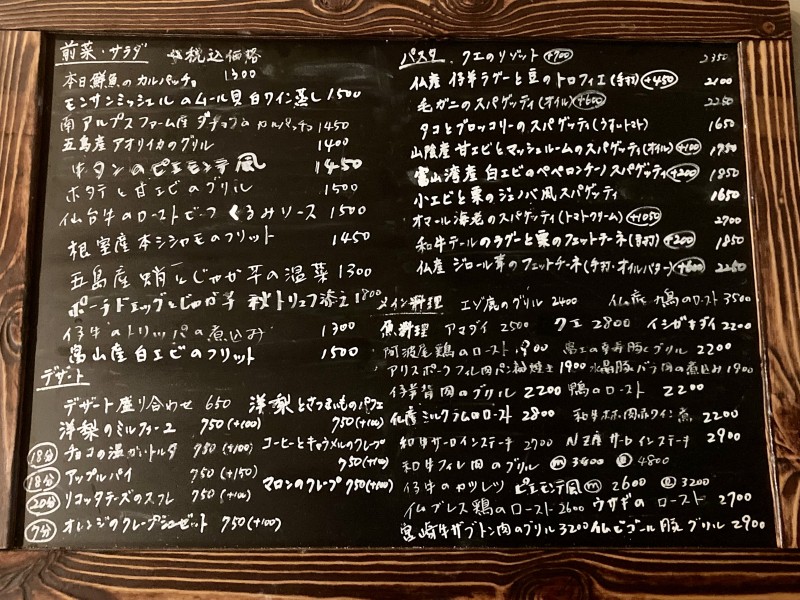 前菜・サラダ ☆税込価格
本日鮮魚のカルパッチョ 1300
モンサンミッシェルのムール貝白ワイン蒸し 1500
南アルプスファーム産 ダチョウのカルパッチョ 1450
五島産アオリイカのグリル 1400
牛タンのピエモンテ風 1450
ホタテと甘エビのグリル 1500
仙台牛のローストビーフ くるみソース 1500
根室産本シシャモのフリット 1450
五島産 蛸とじゃが芋の温菜 1300
ポーチドエッグとじゃが芋 秋トリュフ添え 1800
仔牛のトリッパの煮込み 1300
富山産白エビのフリット 1500
デザート
デザート盛り合わせ 650
洋梨とさつまいものパフェ 750(+100)
洋梨のミルフィーユ 750(+100)
18分 チョコの温かいトルタ 750(+100)
コーヒーとキャラメルのクレープ 750(+100)
18分 アップルパイ 750(+150)
マロンのクレープ 750(+100)
20分 リコッタチーズのスフレ 750(+100)
7分 オレンジのクレープシュゼット 750(+100)
パスタ クエのリゾット +700 2350
仏産 仔羊ラグーと豆のトロフィエ(手打) +450 2100
毛ガニのスパゲッティ(オイル) +600 2250
タコとブロッコリーのスパゲッティ(うすいトマト) 1650
山陰産 甘エビとマッシュルームのスパゲッティ(オイル) +100 1750
富山湾産 白エビのペペロンチーノスパゲッティ +200 1850
小エビと栗のジェノバ風スパゲッティ 1650
オマール海老のスパゲッティ(トマトクリーム) +1050 2700
和牛テールのラグーと栗のフェットチーネ(手打) +200 1850
仏産 ジロール茸のフェットチーネ(手打・オイルバター) +600 2250
メイン料理 エゾ鹿のグリル 2400 仏産 鳩のロースト 3500
魚料理 アマダイ 2500 クエ 2800 イシガキダイ 2200
阿波尾鶏のロースト 1900 富士の幸寿豚グリル 2200
アリスポークフィレ肉パン粉焼き 1900 水晶豚バラ肉の煮込み 1900
仔羊背肉のグリル 2200 鴨のロースト 2200
仏産ミルクラムのロースト 2800 和牛ホホ肉赤ワイン煮 2200
和牛サーロインステーキ 2700 NZ産サーロインステーキ 2900
和牛フィレ肉のグリル Ⓜ 3400 Ⓛ 4800
仔牛のカツレツ ピエモンテ風 Ⓜ 2600 Ⓛ 3200
仏ブレス鶏のロースト 2600 ウサギのロースト 2700
宮崎牛ザブトン肉のグリル 3200 仏ビゴール豚グリル 2900